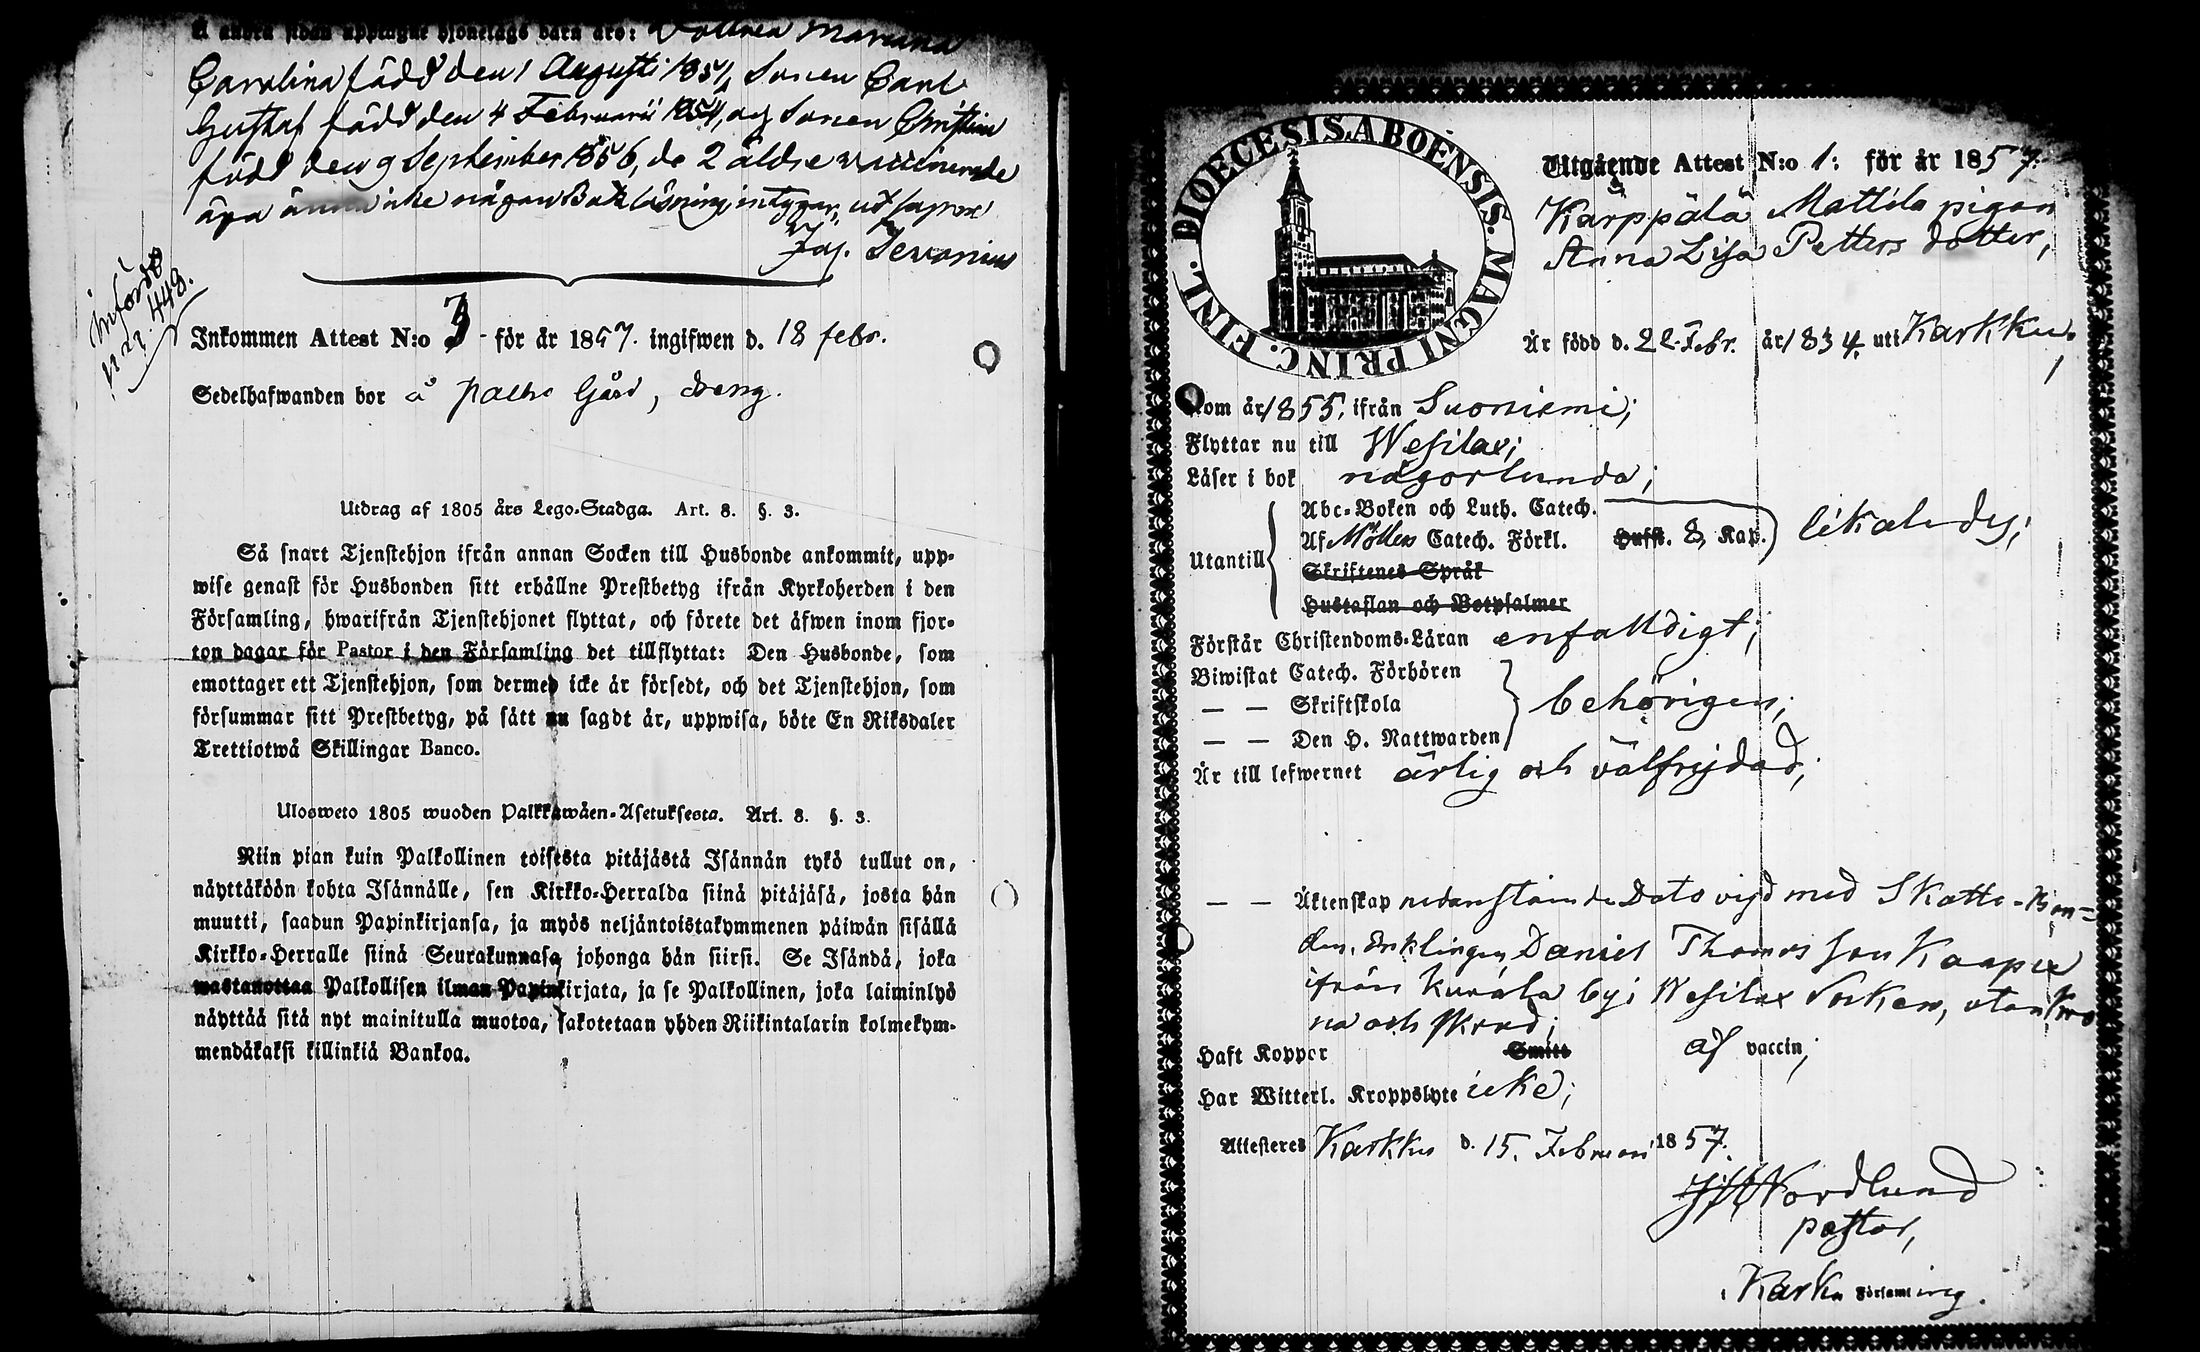 å andra sidan upptagne hjonelags barn äro: Dottren Mariana
Carolina född den 1 Augusti 1851, Sonen Carl
Gustaf född den 4 Februarii 1854, och Sonen Christian
född den 9 September 1856, de 2 äldre vaccinerade
äga inke någon Bokläsning, intygar, ut supra
Jos. Sevonius
införde
448.
Inkommen Attest N:o 3 för år 1857. ingifwen d. 18 febr.
Sedelhafwanden bor å Palho Gård, dreng.
Utdrag af 1805 års Lego-Stadga. Art. 8. §. 3.
Så snart Tjenstehjon ifrån annan Socken till Husbonde ankommit, upp-
wise genast för Husbonden sitt erhållne Prestbetyg ifrån Kyrkoherden i den
Församling, hwarifrån Tjenstehjonet flyttat, och förete det äfwen inom fjor-
ton dagar för Pastor i den Församling det tillflyttat: Den Husbonde, som
emottager ett Tjenstehjon, som dermed icke är försedt, och det Tjenstehjon, som
försummar sitt Prestbetyg, på sätt nu sagdt är, uppwisa, böte En Riksdaler
Trettiotwå Skillingar Banco.
Ulosweto 1805 wuoden Palkkawäen-Asetuksesta. Art. 8. §. 3.
Niin pian kuin Palkollinen toisesta pitäjästä Isännän tykö tullut on,
näyttäköön kohta Isännälle, sen Kirkko-Herralda siinä pitäjäsä, josta hän
muutti, saadun Papinkirjansa, ja myös neljäntoistakymmenen päiwän sisällä
Kirkko-Herralle siinä Seurakunnasa johonga hän siirsi. Se Isändä, joka
wastanottaa Palkollisen ilman Papinkirjata, ja se Palkollinen, joka laiminlyö
näyttää sitä nyt mainitulla muotoa, sakotetaan yhden Riikintalarin kolmekym-
mendäkaksi killinkiä Bankoa.
FINL. DIOECESIS. ABOËNSIS. MAGNI PRINC.
Utgående Attest N:o 1: för år 1857.
Karppälä Mattila pigan
Anna Lisa Petters dotter,
Är född d. 22 Febr. år 1834. uti Karkku.
Kom år 1855, ifrån Suoniemi;
Flyttar nu till Wesilax;
Läser i bok någorlunda;
Utantill
Abc-Boken och Luth. Catech.
Af Möllers Catech. Förkl. Husst. 8, Kap. likaledes;
Skriftenes Språk
Hustaflan och Botpsalmer
Förstår Christendoms-Läran enfalldigt;
Biwistat Catech. Förhören
— — Skriftskola behörigen;
— — Den H. Nattwarden
Är till lefwernet ärlig och välfrejdad;
— — Äktenskap nedanstående Dato vigd med Skatte-Bon-
den, Enklingen Daniel Thomas son Kaapu
ifrån Kurala by i Wesilax Socken, utan Kro
na och Skrud;
Haft Koppor Smitt af vaccin;
Har Witterl. Kroppslyte icke;
Attesteres Karkku d. 15. Februari 1857.
Nordlund
pastor,
i Karku Församling.